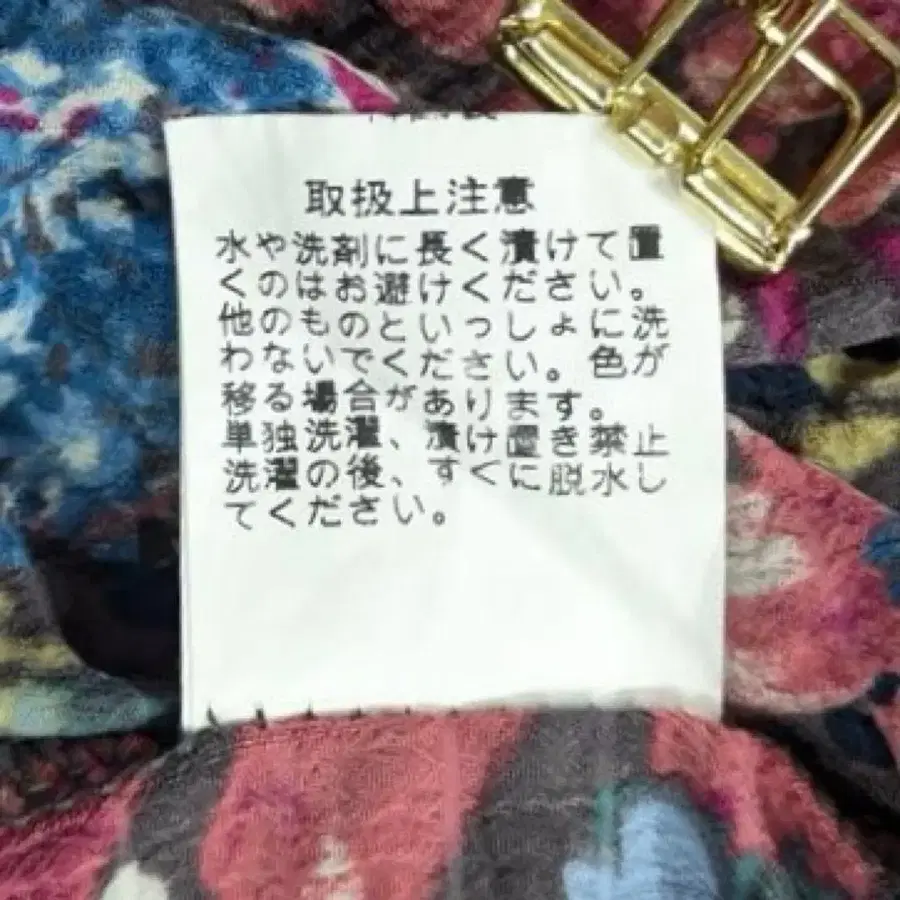 取扱上注意
水や洗剤に長く漬けて置
くのはお避けください。
他のものといっしょに洗
わないでください。色が
移る場合があります。
単独洗濯、漬け置き禁止
洗濯の後、すぐに脱水し
てください。